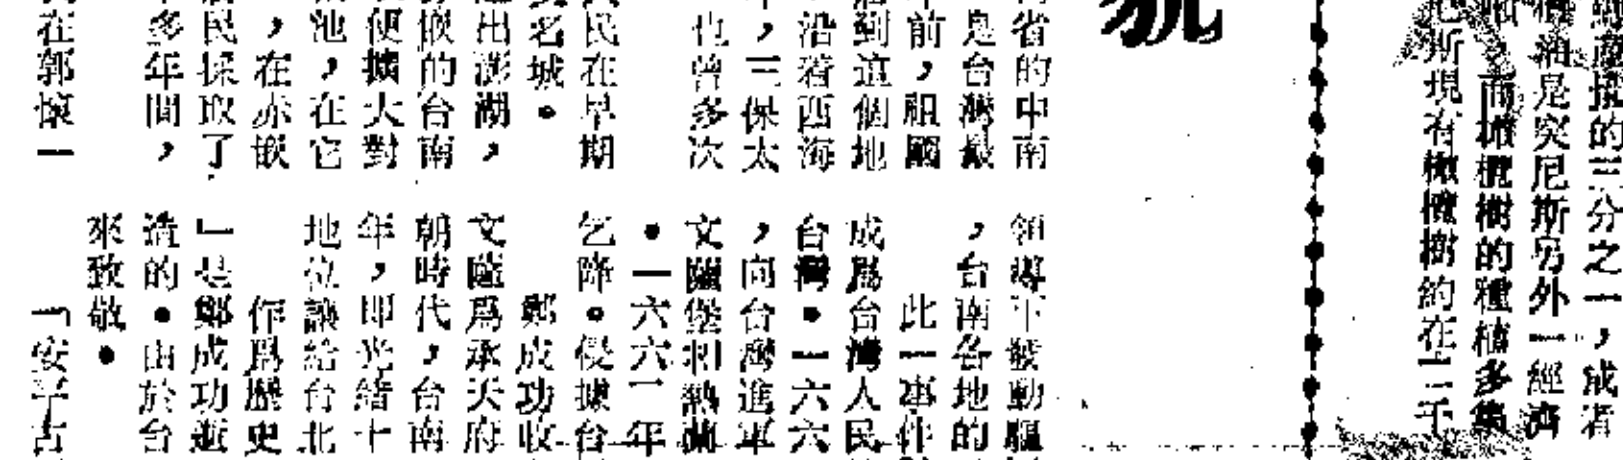 的三分之一，成者
油是突尼斯另外一經濟
，而橄欖樹的種植多集
斯現有橄欖樹約在二千
貌
省的中南
是台灣最
前，祖國
到這個地
沿着西海
，三保太
也曾多次
民在早期
名城。
出澎湖，
嵌的台南
便擴大對
池，在它
，在赤嵌
民採取了
多年間，
在郭懷一
領導下發動驅
，台南各地的
此一事件
成爲台灣人民
台灣。一六六
，向台灣進軍
文蘭堡和熱蘭
。一六六一年
乞降。侵據台
鄭成功收
文薩爲承天府
朝時代，台南
年，即光緒十
地位讓給台北
作爲歷史
」是鄭成功逝
造的。由於台
來致敬。
「安平古